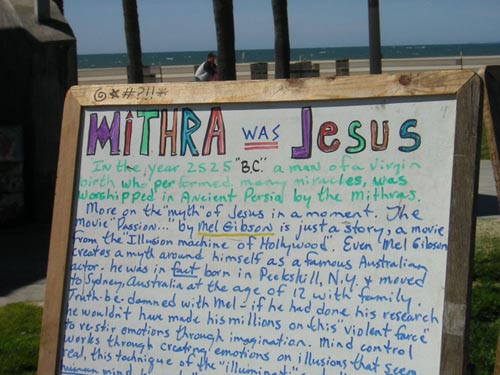 @*#?!!*
MiTHRA WAS JESUS
In the year 2525 "B.C." a man of a virgin
birth who performed many miracles, was
worshipped in Ancient Persia by the Mithras.
More on the "myth" of Jesus in a moment. The
movie "Passion..." by Mel Gibson is just a story, a movie
from the Illusion machine of Hollywood. Even Mel Gibson
creates a myth around himself as a famous Australian
actor. he was in fact born in Peekskill, N.Y. & moved
to Sydney, Australia at the age of 12 with family.
Truth-be-damned with Mel - if he had done his research
he wouldn't have made his millions on this "violent farce"
to re-stir emotions through imagination. Mind control
works through creating emotions on illusions that seem
real, this technique of the "illuminati"
human mind